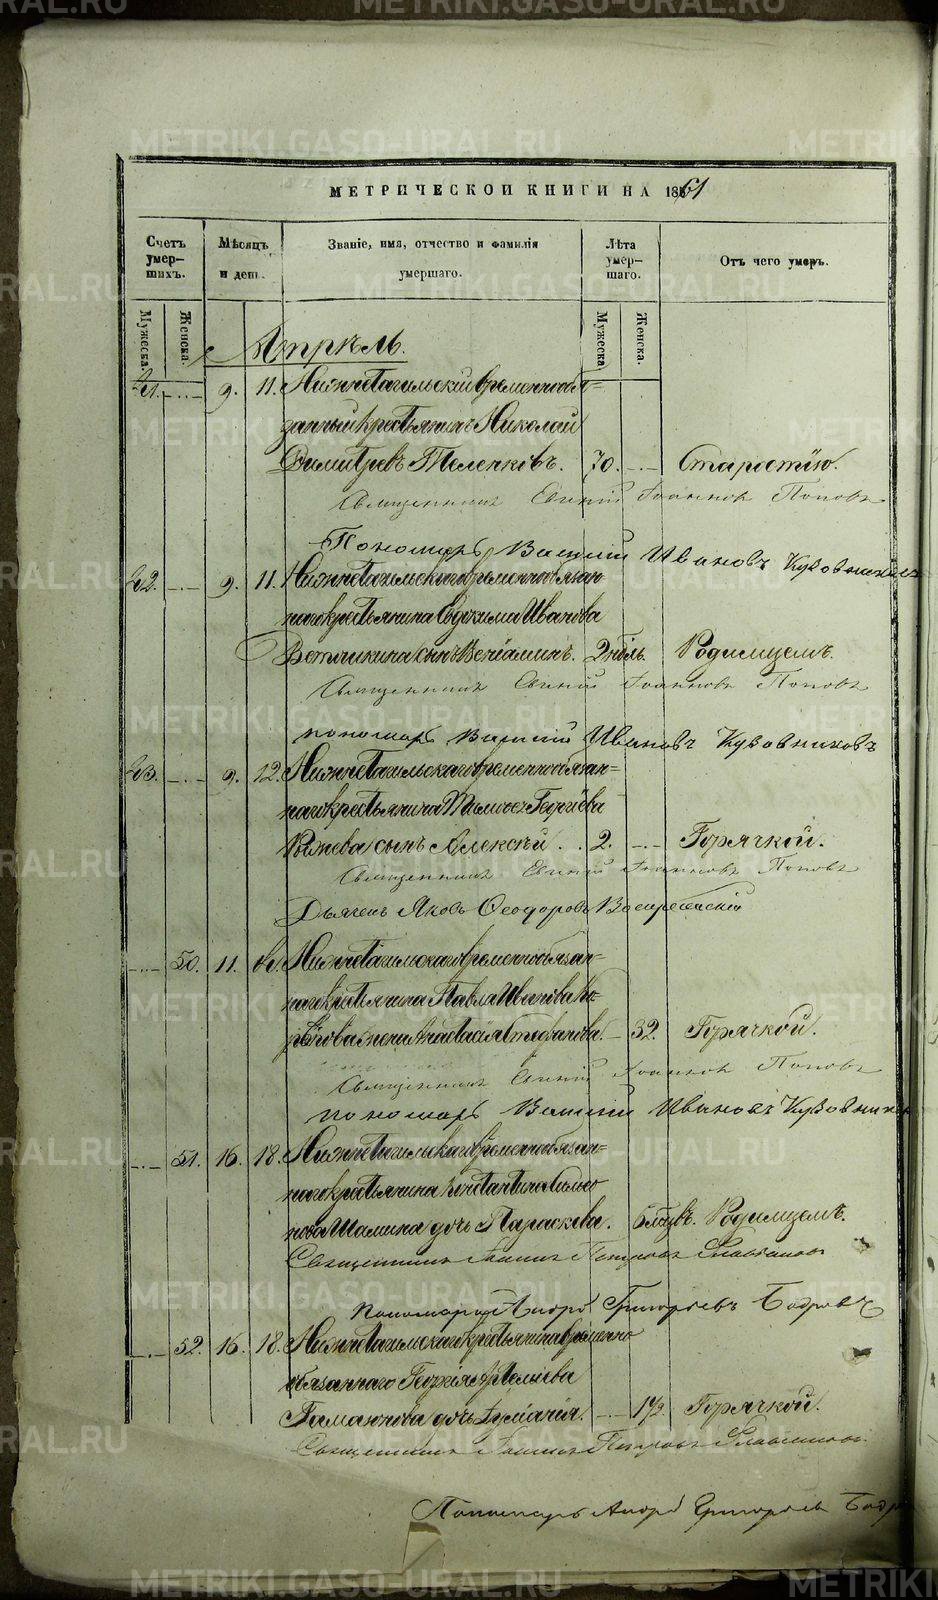 METRIKI.GASO-URAL.RU
МЕТРИЧЕСКОЙ КНИГИ НА 1861
Счетъ умер-шихъ.
Мѣсяцъ и день.
Званіе, имя, отчество и фамилія умершаго.
Лѣта умер-шаго.
Отъ чего умеръ.
Мужеска.
Женска.
Мужеска
Женска.
Апрѣль.
41. 9. 11. Нижнетагильскій временнообя=
занный крестьянинъ Николай
Димитревъ Теленковъ. 70. Старостію.
Священникъ Евгений Іоанновъ Поповъ
Пономарь Василий Ивановъ Кузовниковъ
42. 9. 11. Нижнетагильскаго временнообязан=
наго крестьянина Евдокима Иванова
сынъ Веніаминъ. 2 нѣдль. Родимцемъ.
Священникъ Евгений Іоанновъ Поповъ
пономарь Василий Ивановъ Кузовниковъ
43. 9. 12. Нижнетагильскаго временнообязан=
наго крестьянина Георгіева
сынъ Алексѣй. 2. Горячкой.
Священникъ Евгений Іоанновъ Поповъ
Дьячекъ Яковъ Ѳеодоровъ
50. 11. Нижнетагильскаго временнообязан=
наго крестьянина Павла Иванова
жена Анастасія Стефанова. 32. Горячкой.
Священникъ Евгений Іоанновъ Поповъ
пономарь Василий Ивановъ Кузовников
51. 16. 18. Нижнетагильскаго временнообязан=
наго крестьянина Константина
Шамина дочь Параскева. 6 мѣцвъ. Родимцемъ.
Священникъ Іоаннъ Петровъ
Пономарь Андрей Григорьевъ Бобровъ
52. 16. 18. Нижнетагильскаго крестьянина временно
обязаннаго Георгія Артеміева
дочь 1 1/2 Горячкой.
Священникъ Іоаннъ Петровъ
Пономарь Андрей Григорьевъ